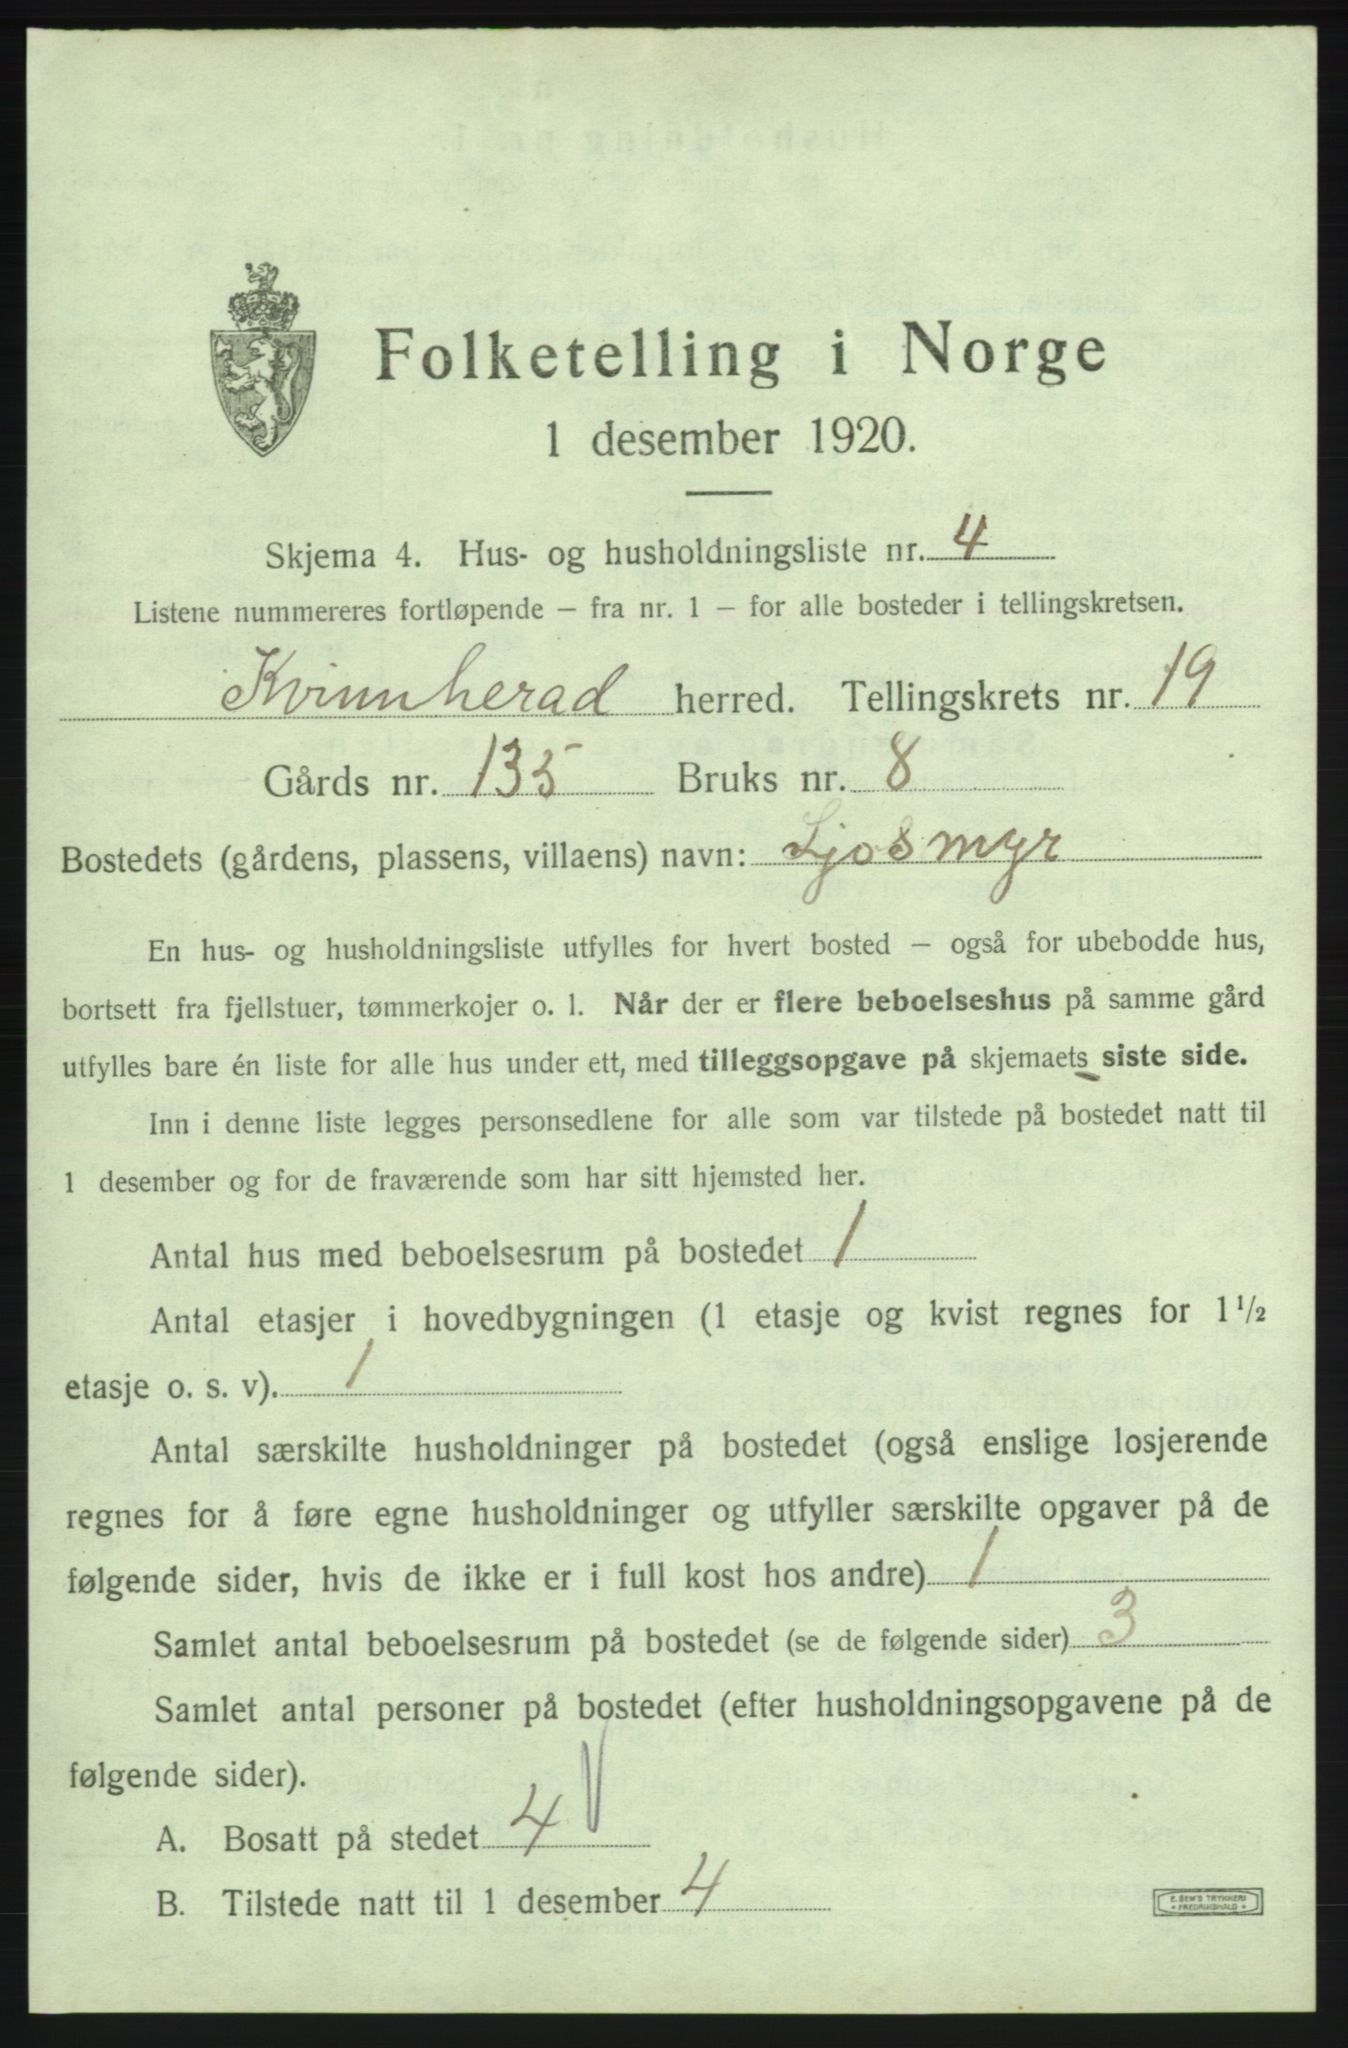 Folketelling i Norge
1 desember 1920.
Skjema 4. Hus- og husholdningsliste nr. 4
Listene nummereres fortløpende – fra nr. 1 – for alle bosteder i tellingskretsen.
Kvinnherad herred. Tellingskrets nr. 19
Gårds nr. 135 Bruks nr. 8
Bostedets (gårdens, plassens, villaens) navn: Ljosmyr
En hus- og husholdningsliste utfylles for hvert bosted – også for ubebodde hus,
bortsett fra fjellstuer, tømmerkojer o. l. Når der er flere beboelseshus på samme gård
utfylles bare én liste for alle hus under ett, med tilleggsopgave på skjemaets siste side.
Inn i denne liste legges personsedlene for alle som var tilstede på bostedet natt til
1 desember og for de fraværende som har sitt hjemsted her.
Antal hus med beboelsesrum på bostedet 1
Antal etasjer i hovedbygningen (1 etasje og kvist regnes for 1 1/2
etasje o. s. v). 1
Antal særskilte husholdninger på bostedet (også enslige losjerende
regnes for å føre egne husholdninger og utfyller særskilte opgaver på de
følgende sider, hvis de ikke er i full kost hos andre) 1
Samlet antal beboelsesrum på bostedet (se de følgende sider) 3
Samlet antal personer på bostedet (efter husholdningsopgavene på de
følgende sider).
A. Bosatt på stedet 4
B. Tilstede natt til 1 desember 4
E. SEM'S TRYKKERI
FREDRIKSHALD